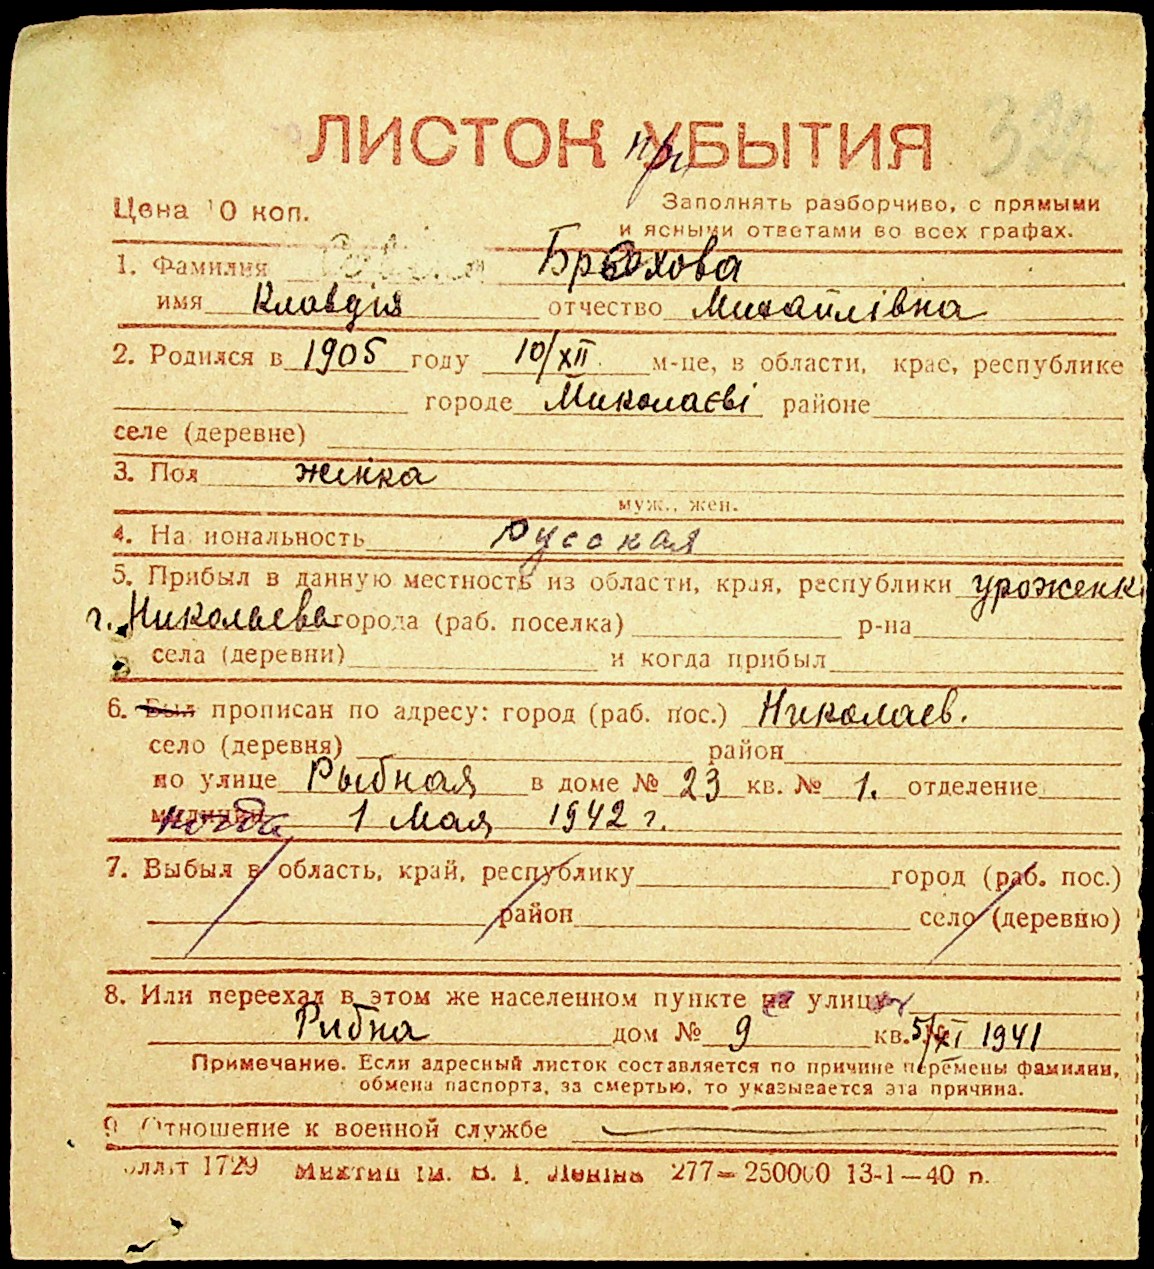 ЛИСТОК УБЫТИЯ
при
322
Цена 10 коп.
Заполнять разборчиво, с прямыми
и ясными ответами во всех графах.
1. Фамилия Брюхова
имя Клавдія отчество Михайлівна
2. Родился в 1905 году 10/XII м-це, в области, крае, республике
городе Миколаєві районе
селе (деревне)
3. Пол жінка
муж., жен.
4. Национальность русская
5. Прибыл в данную местность из области, края, республики уроженк
г. Николаева города (раб. поселка) р-на
села (деревни) и когда прибыл
6. Был прописан по адресу: город (раб. пос.) Николаев.
село (деревня) район
по улице Рыбная в доме № 23 кв. № 1. отделение
милиции когда 1 Мая 1942 г.
7. Выбыл в область, край, республику город (раб. пос.)
район село (деревню)
8. Или переехал в этом же населенном пункте на улицу
Рибна дом № 9 кв. № 5/XI 1941
Примечание. Если адресный листок составляется по причине перемены фамилии,
обмена паспорта, за смертью, то указывается эта причина.
9. Отношение к военной службе
1729 В. І. Леніна 277—250000 13-1—40 п.